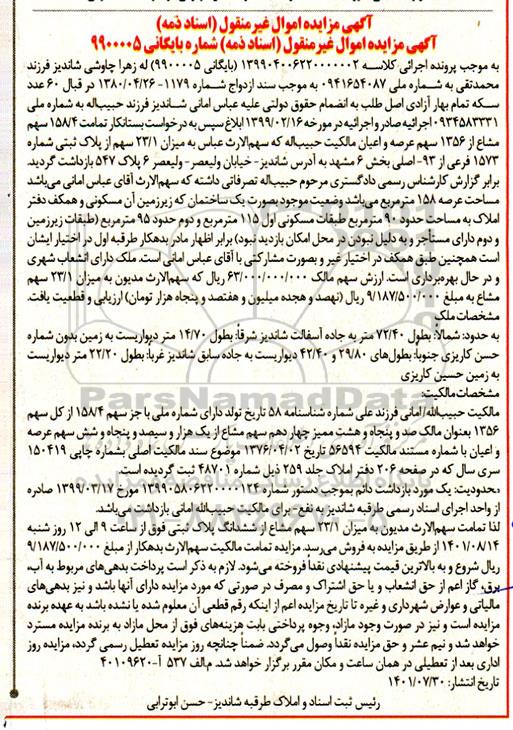 آگهی مزایده اموال غیر منقول (اسناد ذمه)
آگهی مزایده اموال غیر منقول (اسناد ذمه) شماره بایگانی ۹۹۰۰۰۰۵
به موجب پرونده اجرائی کلاسه ۱۳۹۹۰۴۰۰۶۲۲۰۰۰۰۰۰۲ (بایگانی ۹۹۰۰۰۰۵) له زهرا چاوشی شاندیز فرزند
محمدتقی به شماره ملی ۰۹۴۱۶۵۴۰۸۷ به موجب سند ازدواج شماره ۱۱۷۹- ۱۳۸۰/۰۴/۲۶ در قبال ۶۰ عدد
سکه تمام بهار آزادی اصل طلب به انضمام حقوق دولتی علیه عباس امانی شاندیز فرزند حبیب‌اله به شماره ملی
۰۹۳۴۵۸۳۳۳۱ اجرائیه صادر و اجرائیه در مورخه ۱۳۹۹/۰۲/۱۶ ابلاغ سپس به درخواست بستانکار تمامت ۱۵۸/۴ سهم
مشاع از ۱۳۵۶ سهم عرصه و اعیان مالکیت حبیب‌اله که سهم‌الارث عباس به میزان ۲۳/۱ سهم از پلاک ثبتی شماره
۱۵۷۳ فرعی از ۹۳- اصلی بخش ۶ مشهد به آدرس شاندیز- خیابان ولیعصر- ولیعصر ۶ پلاک ۵۴۷ بازداشت گردید.
برابر گزارش کارشناس رسمی دادگستری مرحوم حبیب‌اله تصرفاتی داشته که سهم‌الارث آقای عباس امانی می‌باشد
مساحت عرصه ۱۵۸ مترمربع می‌باشد وضعیت موجود بصورت یک ساختمان که زیرزمین آن مسکونی و همکف دفتر
املاک به مساحت حدود ۹۰ مترمربع طبقات مسکونی اول ۱۱۵ مترمربع و دوم حدود ۹۵ مترمربع (طبقات زیرزمین
و دوم دارای مستأجر و به دلیل نبودن در محل امکان بازدید نبود) برابر اظهار مادر بدهکار طرقبه اول در اختیار ایشان
است همچنین طبق همکف در اختیار غیر و بصورت مشارکتی با آقای عباس امانی است. ملک دارای انشعاب شهری
و در حال بهره‌برداری است. ارزش سهم مالک ۶۳/۰۰۰/۰۰۰/۰۰۰ ریال که سهم‌الارث مدیون به میزان ۲۳/۱ سهم
مشاع به مبلغ ۹/۱۸۷/۵۰۰/۰۰۰ ریال (نهصد و هجده میلیون و هفتصد و پنجاه هزار تومان) ارزیابی و قطعیت یافت.
مشخصات ملک
به حدود: شمالاً: بطول ۷۲/۴۰ متر به جاده آسفالت شاندیز شرقاً: بطول ۱۴/۷۰ متر دیواریست به زمین بدون شماره
حسن کاریزی جنوباً: بطول‌های ۲۹/۸۰ و ۴۲/۴۰ دیواریست به جاده سابق شاندیز غرباً: بطول ۲۲/۲۰ متر دیواریست
به زمین حسین کاریزی
مشخصات مالکیت:
مالکیت حبیب‌الله/ امانی فرزند علی شماره شناسنامه ۵۸ تاریخ تولد دارای شماره ملی با جز سهم ۱۵۸/۴ از کل سهم
۱۳۵۶ بعنوان مالک صد و پنجاه و هشت ممیز چهار دهم سهم مشاع از یک هزار و سیصد و پنجاه و شش سهم عرصه
و اعیان با شماره مستند مالکیت ۵۶۵۹۴ تاریخ ۱۳۷۶/۰۴/۰۲ موضوع سند مالکیت اصلی بشماره چاپی ۱۵۰۴۱۹
سری سال که در صفحه ۲۰۶ دفتر املاک جلد ۲۵۹ ذیل شماره ۴۸۷۰۱ ثبت گردیده است.
محدودیت: یک مورد بازداشت دائم بموجب دستور شماره مورخ ۱۳۹۹/۰۳/۱۷ صادره
از واحد اجرای اسناد رسمی طرقبه شاندیز به نفع- برای مالکیت حبیب‌الله امانی بازداشت می‌باشد.
لذا تمامت سهم‌الارث مدیون به میزان ۲۳/۱ سهم مشاع از ششدانگ پلاک ثبتی فوق از ساعت ۹ الی ۱۲ روز شنبه
۱۴۰۱/۰۸/۱۴ از طریق مزایده به فروش می‌رسد. مزایده تمامت مالکیت سهم‌الارث بدهکار از مبلغ ۹/۱۸۷/۵۰۰/۰۰۰
ریال شروع و به بالاترین قیمت پیشنهادی نقداً فروخته می‌شود. لازم به ذکر است پرداخت بدهی‌های مربوط به آب،
برق، گاز اعم از حق انشعاب و یا حق اشتراک و مصرف در صورتی که مورد مزایده دارای آنها باشد و نیز بدهی‌های
مالیاتی و عوارض شهرداری و غیره تا تاریخ مزایده اعم از اینکه رقم قطعی آن معلوم شده یا نشده باشد به عهده برنده
مزایده است و نیز در صورت وجود مازاد، وجوه پرداختی بابت هزینه‌های فوق از محل مازاد به برنده مزایده مسترد
خواهد شد و نیم عشر و حق مزایده نقداً وصول می‌گردد. ضمناً چنانچه روز مزایده تعطیل رسمی گردد، مزایده روز
اداری بعد از تعطیلی در همان ساعت و مکان مقرر برگزار خواهد شد. م‌الف ۵۳۷ آ-۴۰۱۰۹۶۲۰
تاریخ انتشار: ۱۴۰۱/۰۷/۳۰
رئیس ثبت اسناد و املاک طرقبه شاندیز- حسن ابوترابی
ParsNamadData